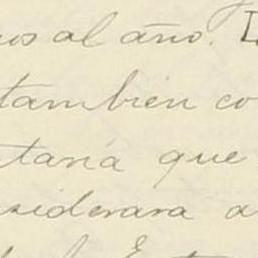 os al año.
también co
taria que
siderara a